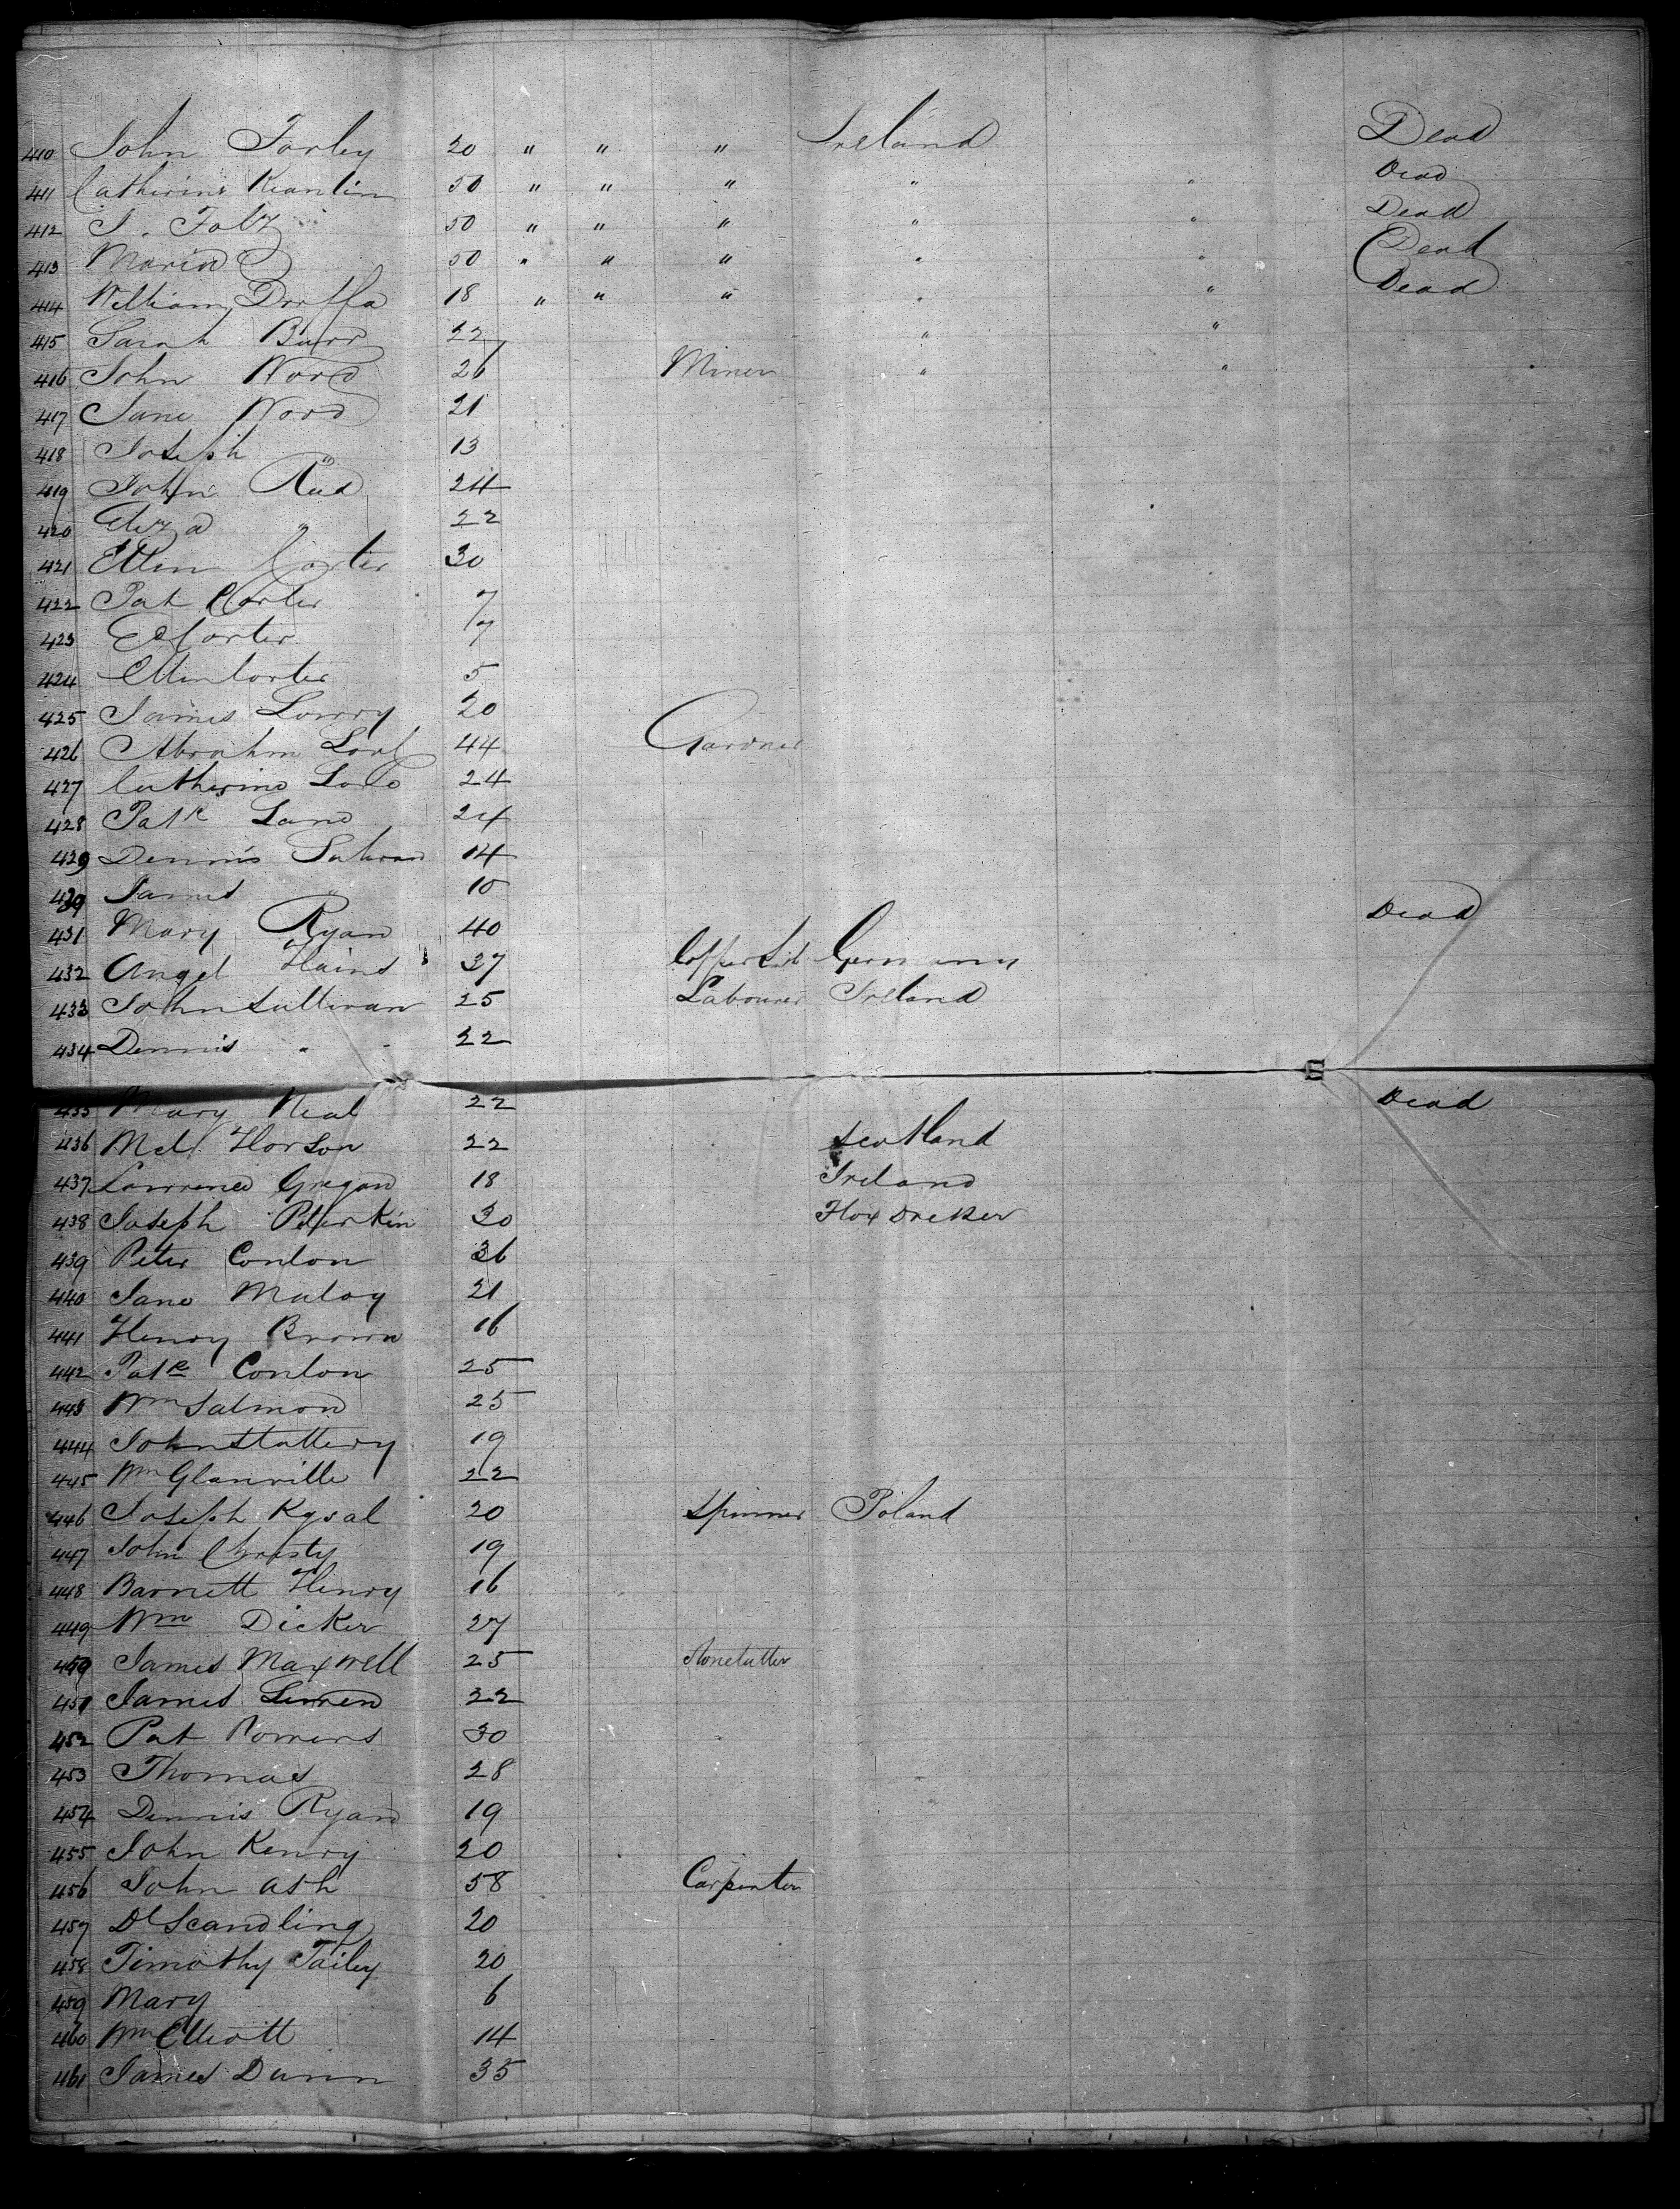 410 John Farley 20 " " " Ireland Dead
411 Catherine 50 " " " " " Dead
412 J. Foltz 50 " " " " " Dead
413 Maria 50 " " " " " Dead
414 William Droffa 18 " " " " " Dead
415 Sarah Burr 22 " "
416 John Word 26 Miner " "
417 Jane Word 21
418 Joseph " 13
419 John Rud 24
420 Eliza " 22
421 Ellen Corter 30
422 Pat Corter 7
423 E Corter 7
424 Ellen Corter 5
425 James Lowry 20
426 Abrahm 44 Gardner
427 Catherine 24
428 Patk Land 24
429 Dennis 14
430 James " 10
431 Mary Ryan 40 Dead
432 Angel Haind 37 Germany
433 John Sullivan 25 Labourer Ireland
434 Dennis " " 22
435 Mary Neal 22 Dead
436 Horson 22 Scotland
437 Lawrence Gregan 18 Ireland
438 Joseph Peterkin 30
439 Peter Conlon 36
440 Jane Maloy 21
441 Henry Brown 16
442 Patk Conlon 25
443 Wm Salmon 25
444 John Slattery 19
445 Wm Glanville 22
446 Joseph Kysal 20 Spinner Poland
447 John Christy 19
448 Barnett Henry 16
449 Wm Dicker 27
450 James Maxwell 25 Stonecutter
451 James 22
452 Pat 30
453 Thomas 28
454 Dennis Ryan 19
455 John Kenry 20
456 John Ash 58 Carpenter
457 Dl Scandling 20
458 Timothy Tailey 20
459 Mary 6
460 Wm Elliott 14
461 James Dunn 35